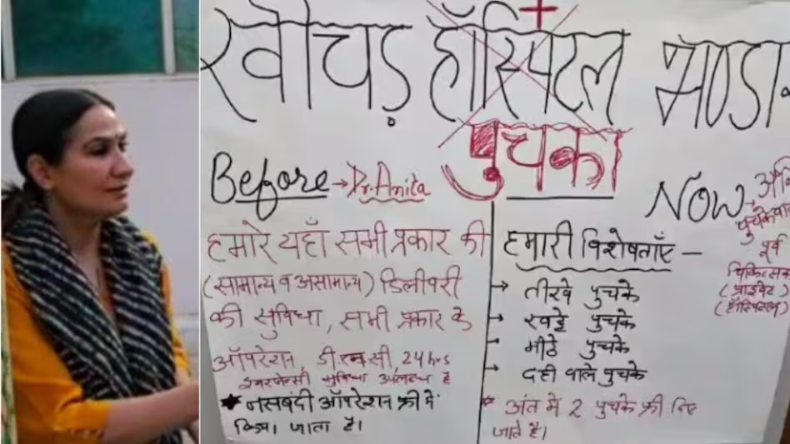 खीचड़ हॉस्पिटल
पुचका
Before → Dr. Anita
हमारे यहाँ सभी प्रकार की
(सामान्य व असामान्य) डिलीवरी
की सुविधा, सभी प्रकार के
ऑपरेशन, डी एन सी 24 hrs
इमरजेन्सी सुविधा उपलब्ध है
* नसबंदी ऑपरेशन फ्री में
किया जाता है।
Now →
पूर्व
(प्राइवेट)
हमारी विशेषताएँ —
→ तीखे पुचके
→ खट्टे पुचके
→ मीठे पुचके
→ दही वाले पुचके
* अंत में 2 पुचके फ्री दिए
जाते है।